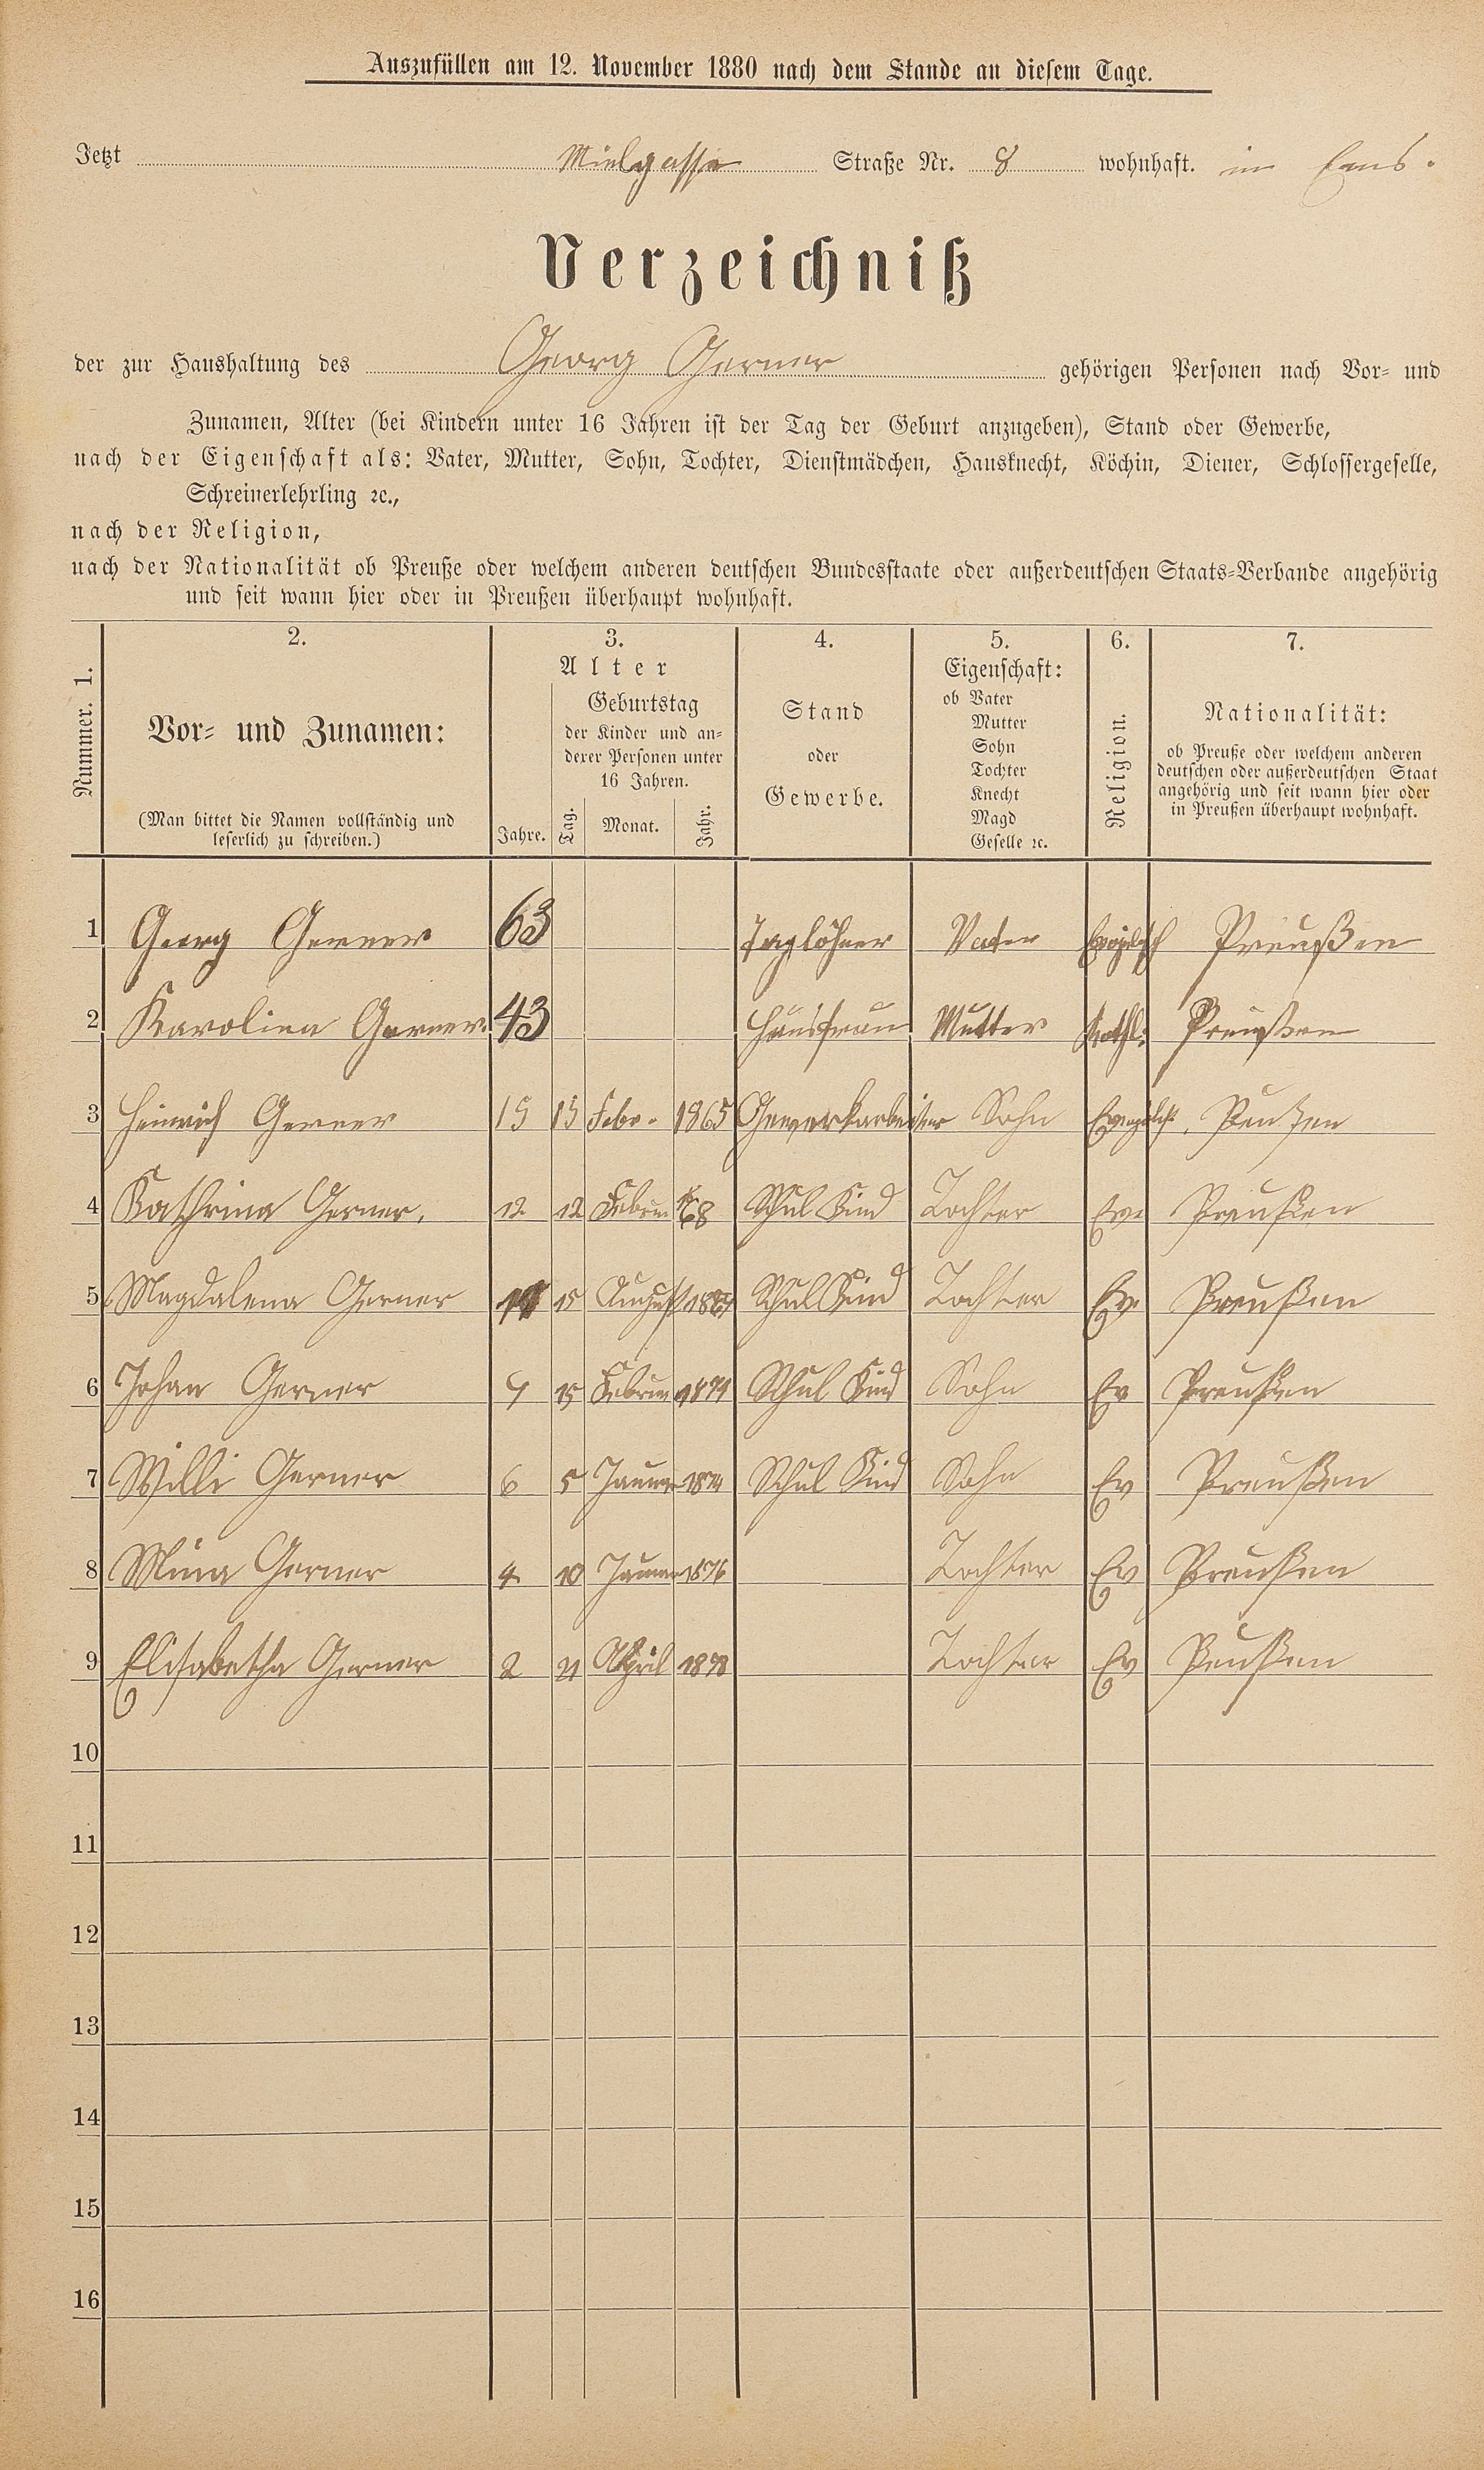 Auszufüllen am 12. November 1880 nach dem Stande an diesem Tage.
Jetzt Mielgasse Straße Nr. 8 wohnhaft. in Ems.
Verzeichniß
der zur Haushaltung des Georg Gerner gehörigen Personen nach Vor- und
Zunamen, Alter (bei Kindern unter 16 Jahren ist der Tag der Geburt anzugeben), Stand oder Gewerbe,
nach der Eigenschaft als: Vater, Mutter, Sohn, Tochter, Dienstmädchen, Hausknecht, Köchin, Diener, Schlossergeselle,
Schreinerlehrling ꝛc.,
nach der Religion,
nach der Nationalität ob Preuße oder welchem anderen deutschen Bundesstaate oder außerdeutschen Staats-Verbande angehörig
und seit wann hier oder in Preußen überhaupt wohnhaft.
Nummer. 1.
2.
Vor- und Zunamen:
(Man bittet die Namen vollständig und
leserlich zu schreiben.)
3.
Alter
Jahre.
Geburtstag
der Kinder und an-
derer Personen unter
16 Jahren.
Tag. Monat. Jahr.
4.
Stand
oder
Gewerbe.
5.
Eigenschaft:
ob Vater
Mutter
Sohn
Tochter
Knecht
Magd
Geselle ꝛc.
6.
Religion.
7.
Nationalität:
ob Preuße oder welchem anderen
deutschen oder außerdeutschen Staat
angehörig und seit wann hier oder
in Preußen überhaupt wohnhaft.
1 Georg Gerner 63 Taglöhner Vater Preußen
2 Karolina Gerner. 43 Hausfrau Mutter Kathl: Preußen
3 Heinrich Gerner 15 15 Febr. 1865 Sohn Preußen
4 Kathrina Gerner. 12 12 Februar 68 Schul Kind Tochter Ev Preußen
5 Magdalena Gerner 15 August Schul Kind Tochter Ev Preußen
6 Johan Gerner 15 Februar Schul Kind Sohn Ev Preußen
7 Willi Gerner 6 5 Januar 1874 Schul Kind Sohn Ev Preußen
8 Mina Gerner 4 10 Januar 1876 Tochter Ev Preußen
9 Elisabetha Gerner 2 21 April 1878 Tochter Ev Preußen
10
11
12
13
14
15
16